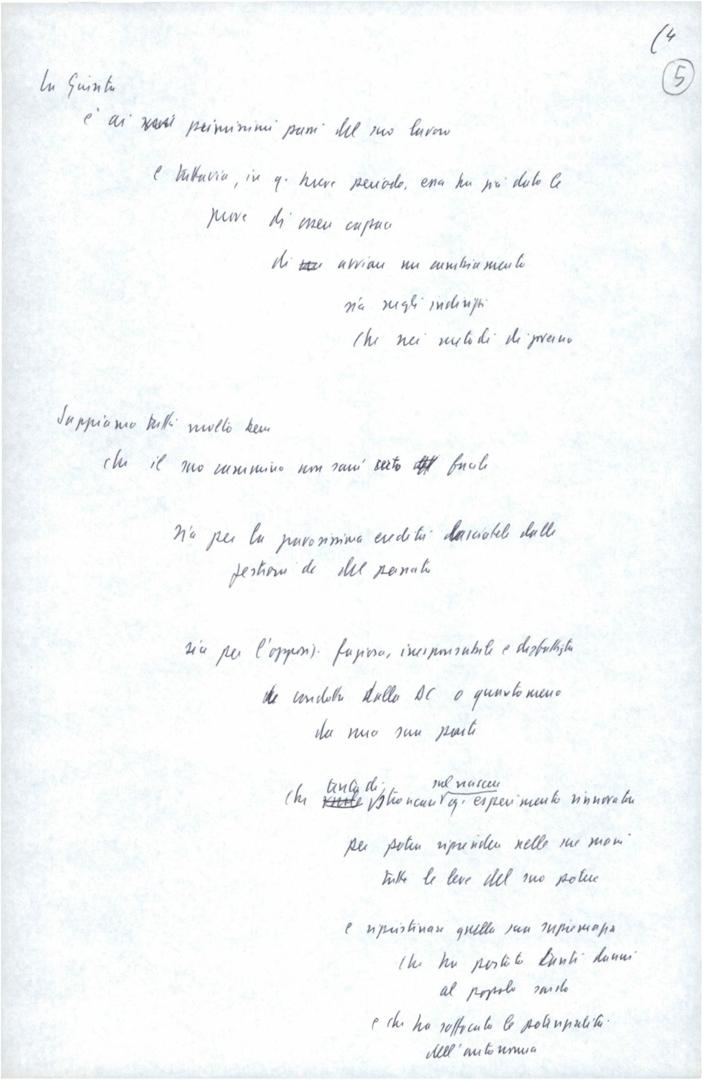 (4
5
La Giunta
è ai primissimi passi del suo lavoro
e tuttavia, in q. breve periodo, essa ha già dato le
prove di essere capace
di avviare un cambiamento
sia negli indirizzi
che nei metodi di governo
Sappiamo tutti molto bene
che il suo cammino non sarà certo facile
sia per la pesantissima eredità lasciatale dalle
gestioni dc del passato
sia per l'opposiz. faziosa, irresponsabile e disfattista
condotta dalla DC o quantomeno
da una sua parte
tenta di sul nascere
che stroncare q. esperimento rinnovatore
per poter riprendere nelle sue mani
tutte le leve del suo potere
e ripristinare quella sua supremazia
che ha portato tanti danni
al popolo sardo
e che ha soffocato le potenzialità
dell'autonomia